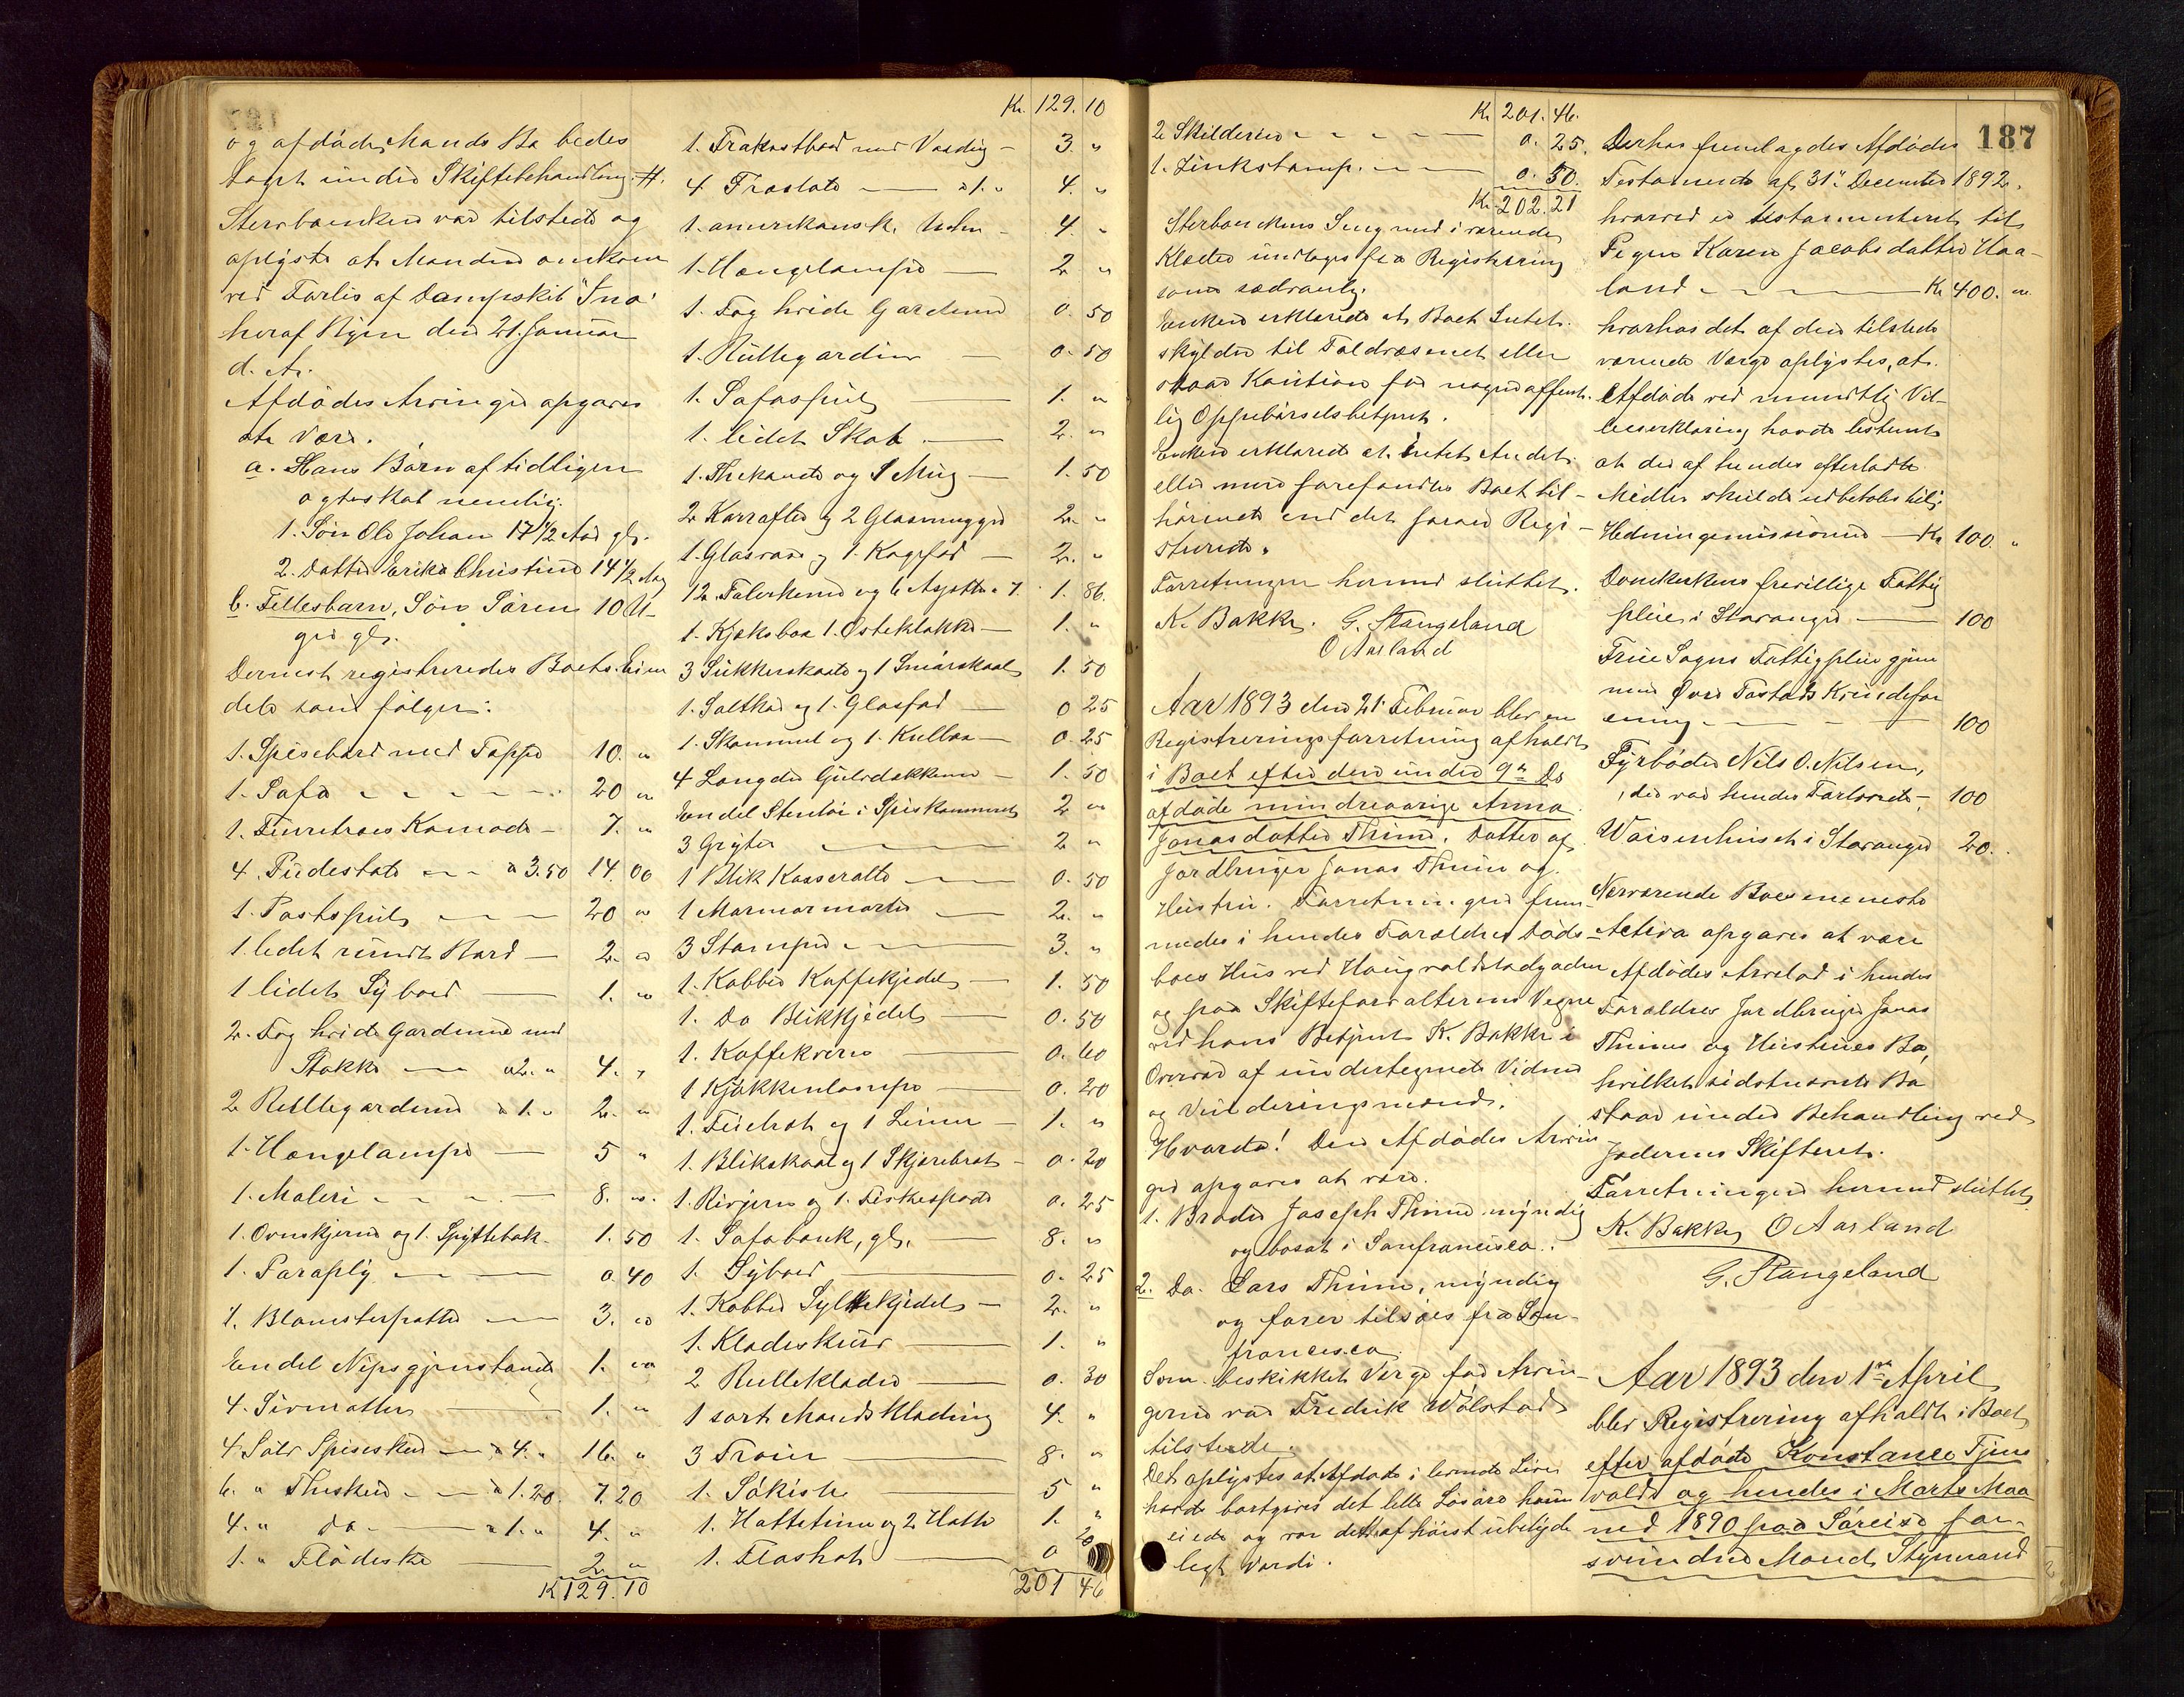 og afdøde Mands Bo bedes
taget under Skiftebehandling. #.
Sterboenken var tilstede og
oplyste at Manden omkom
ved Forlis af Dampskib "Ino"
heraf Byen den 21. Januar
d. A.
Afdødes Arvinger opgaves
at være.
a. Hans Børn af tidligere
Ægteskab nemlig:
1. Søn Ole Johan 17 1/2 Aar gl.
2. Datter Erika Christine 14 1/2 Aar
b. Fellesbarn, Søn Søren 10 U-
ger gl.
Dernest registreredes Boets Eien
dele som følger:
1. Spisebord med Tæppe 10. "
1. Sofa 20 "
1. Furetræs Komode 7. "
4. Pudestole à 3.50 14.00
1. Postspeil 20 "
1 lidet rundt Bord 2. "
1 lidet Sybord 1. "
2. Fag hvide Gardiner med
Stokke à 2. " 4. "
2 Rullegardiner à 1. " 2. "
1. Hængelampe 5 "
1. Maleri 8. "
1. Ovnskjerm og 1. Spyttebak 1.50
1. Paraply 0.40
1. Blomsterpotte 3. "
Endel Nipsgjenstande 1. "
4. Sivmatter 1. "
4. Sølv Spiseskeer à 4. " 16. "
6. " Theskeer à 1.20. 7.20
4. " do à 1. " 4. "
1. " Flødeske 2 "
K 129.10
Kr. 129.10
1. Frokostbord med Voxdug 3. "
4 Træstole à 1. " 4. "
1. amerikansk. Uhr 4. "
1. Hængelampe 2 "
1. Fag hvide Gardiner 0.50
1. Rullegardin 0.50
1. Sofaspeil 1. "
1. lidet Skab 2. "
1. Thekande og 1 Mug 1.50
2 Karafler og 2 Glasmugger 2. "
1. Glasvase og 1. Kagefad 2. "
12. Talerkener og 6 Asjetter à 7 1.86.
1. Kjeksboa 1. Osteklokke 1. "
3 Sukkerskaale og 1 Smørskaal 1.50
1. Saltkar og 1. Glasfad 0 25
1. Skammel og 1. Kulboa 0.25
4 Længder Gulvdækken 1.50
Endel Stentøi i Spiskammeret 2 "
3 Gryter 2 "
1 Blik Kasserolle 0.50
1 Marmormorter 2. "
3 Stamper 3. "
1. Kobber Kaffekjedel 1.50
1. Do Blikkjedel 0.50
1. Kaffekvern 0.60
1 Kjøkkenlampe 0.20
1. Feiebrat og 1 Limer 1. "
1. Blikskaal og 1 Skjærebræt 0.20
1. Rivjern og 1. Fiskespade 0.25
1. Sofabænk, gl. 8. "
1. Sybord 0.25
1. Kobber Syltekjedel 2. "
1. Klædeskurv 1. "
2 Rulleklæder 0.30
1 sort Mands Klædning 4. "
3 Trøier 8. "
1. Søkiste 5 "
1. Hattetine og 2 Hatte 1. "
1. Floshat 0 20
201 46
187
Kr 201.46.
2 Skilderier 0.25.
1. Zinkstamp. 0.50.
Kr 202.21
Sterboenkens Seng med iværende
Klæder undtoges fra Registrering
som sædvanlig.
Enken erklærede at Boet Intet
skylder til Toldvæsenet eller
staar Kaution for nogen offent-
lig Oppebørselsbetjent.
Enken erklærede at intet Andet
eller mere forefandtes Boet til-
hørende end det foran Regi-
strerede.
Forretningen hermed sluttet.
K. Bakke. G. Stangeland
O Aarland
Aar 1893 den 21 Februar blev en
Registreringsforretning afholdt
i Boet efter den under 9de Ds
afdøde mindreaarige Anna
Jonasdatter Thime. Datter af
Jordbruger Jonas Thime og
Hustru. Forretningen frem-
medes i hendes Forældres Døds-
boes Hus ved Haugvaldstadgaden
og paa Skifteforvalterens Vegne
ved hans Betjent K. Bakke i
Overvær af undertegnede Vidner
og Vurderingsmænd.
Hvorda! Den Afdødes Arvin
ger opgaves at være.
1. Broder Joseph Thime myndig
og bosat i Sanfrancisco.
2. Do. Lars Thime, myndig
og farer tilsøes fra San-
francisco.
Som beskikket Verge for Arvin-
gerne var Fredrik Wølstad
tilstede.
Det oplystes at Afdøde i levende Live
havde bortgives det lille Løsøre hun
eiede og var dette af høist ubetyde
ligt Værdi.
Derhos fremlagdes Afdødes
Testamente af 31te December 1892,
hvorved er testamenteret til
Pigen Karen Jacobsdatter Haa-
land Kr 400. "
hvorhos det af den tilstede
værende Værge oplystes, at
Afdøde ved mundtlig Vil-
lieserklæring havde bestemt
at der af hendes efterladte
Midler skulde udbetales til:
Hedningemissionen Kr 100. "
Domkirkens frivillige Fattig
pleie i Stavanger 100
Frue Sogns Fattigpleie gjen
nem Øvre Tastads Kvindefor
ening 100
Fyrbøder Nils O. Nilsen,
der var hendes Forlovede, 100
Waisenhuset i Stavanger 20.
Nærværende Boes eneneste
Activa opgaves at være
Afdødes Arvelod i hendes
Forældres Jordbruger Jonas
Thimes og Hustrues Bo,
hvilket sidstnævnte Bo
staar under Behandling ved
Jæderens Skifteret.
Forretningen hermed sluttet.
K. Bakke O Aarland
G. Stangeland
Aar 1893 den 1ste April
blev Registrering afholdt i Boet
efter afdøde Konstance Tjens
volds og hendes i Marts Maa
ned 1890 paa Søreise for-
svundne Mand, Styrmand